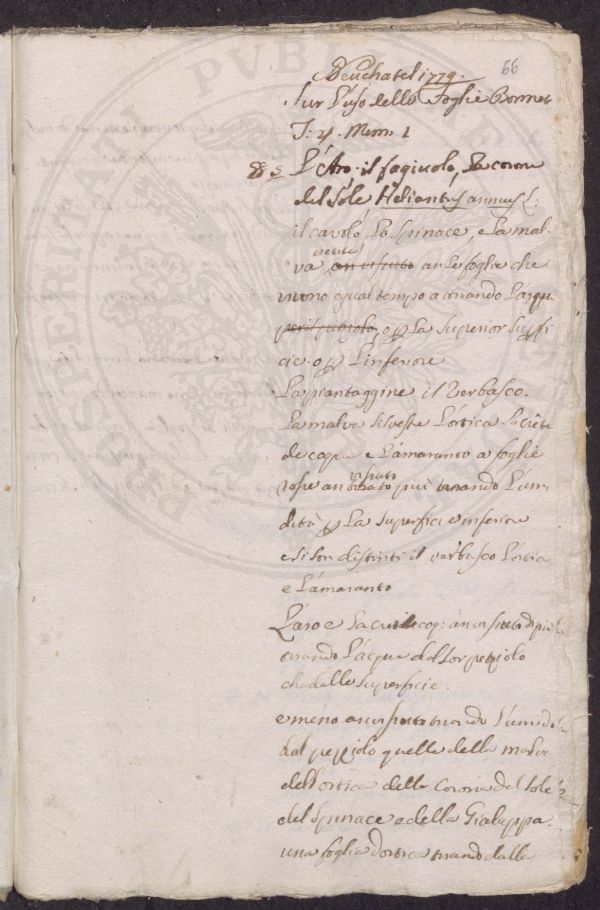 66
Neuchatel 1779.
Sur l'uso delle Foglie Bonnet
T: 4. Mem: 1
88 s L'Aro. il fagiuolo, La corona
del Sole Heliantus annuus L:
il cavolo La Spinace, e La mal-
va an le foglie che
vivono equal tempo a tirando L'acqua
o La Superior Supfi
cie. o L'inferiore
La piantaggine il Verbasco.
La malva Silvestre L'ortica La crête
de coqu e L'amaranto a foglie
rosse an vissuto più tirando L'umi
dità La Superficie inferiore
e si son distinti il verbasco L'ortica
e L'amaranto
L'aro e La crête coq: àn vissuto di più
tirando L'acqua dal Lor peziolo
che dalle Superficie.
e meno àn vissuto tirando L'umido
dal peziolo quelle della malva
dell'ortica della Corona del Sole
del Spinace e della Gialappa.
una foglia d'ortica tirando dalla
PROSPERITATI PVBLICAE